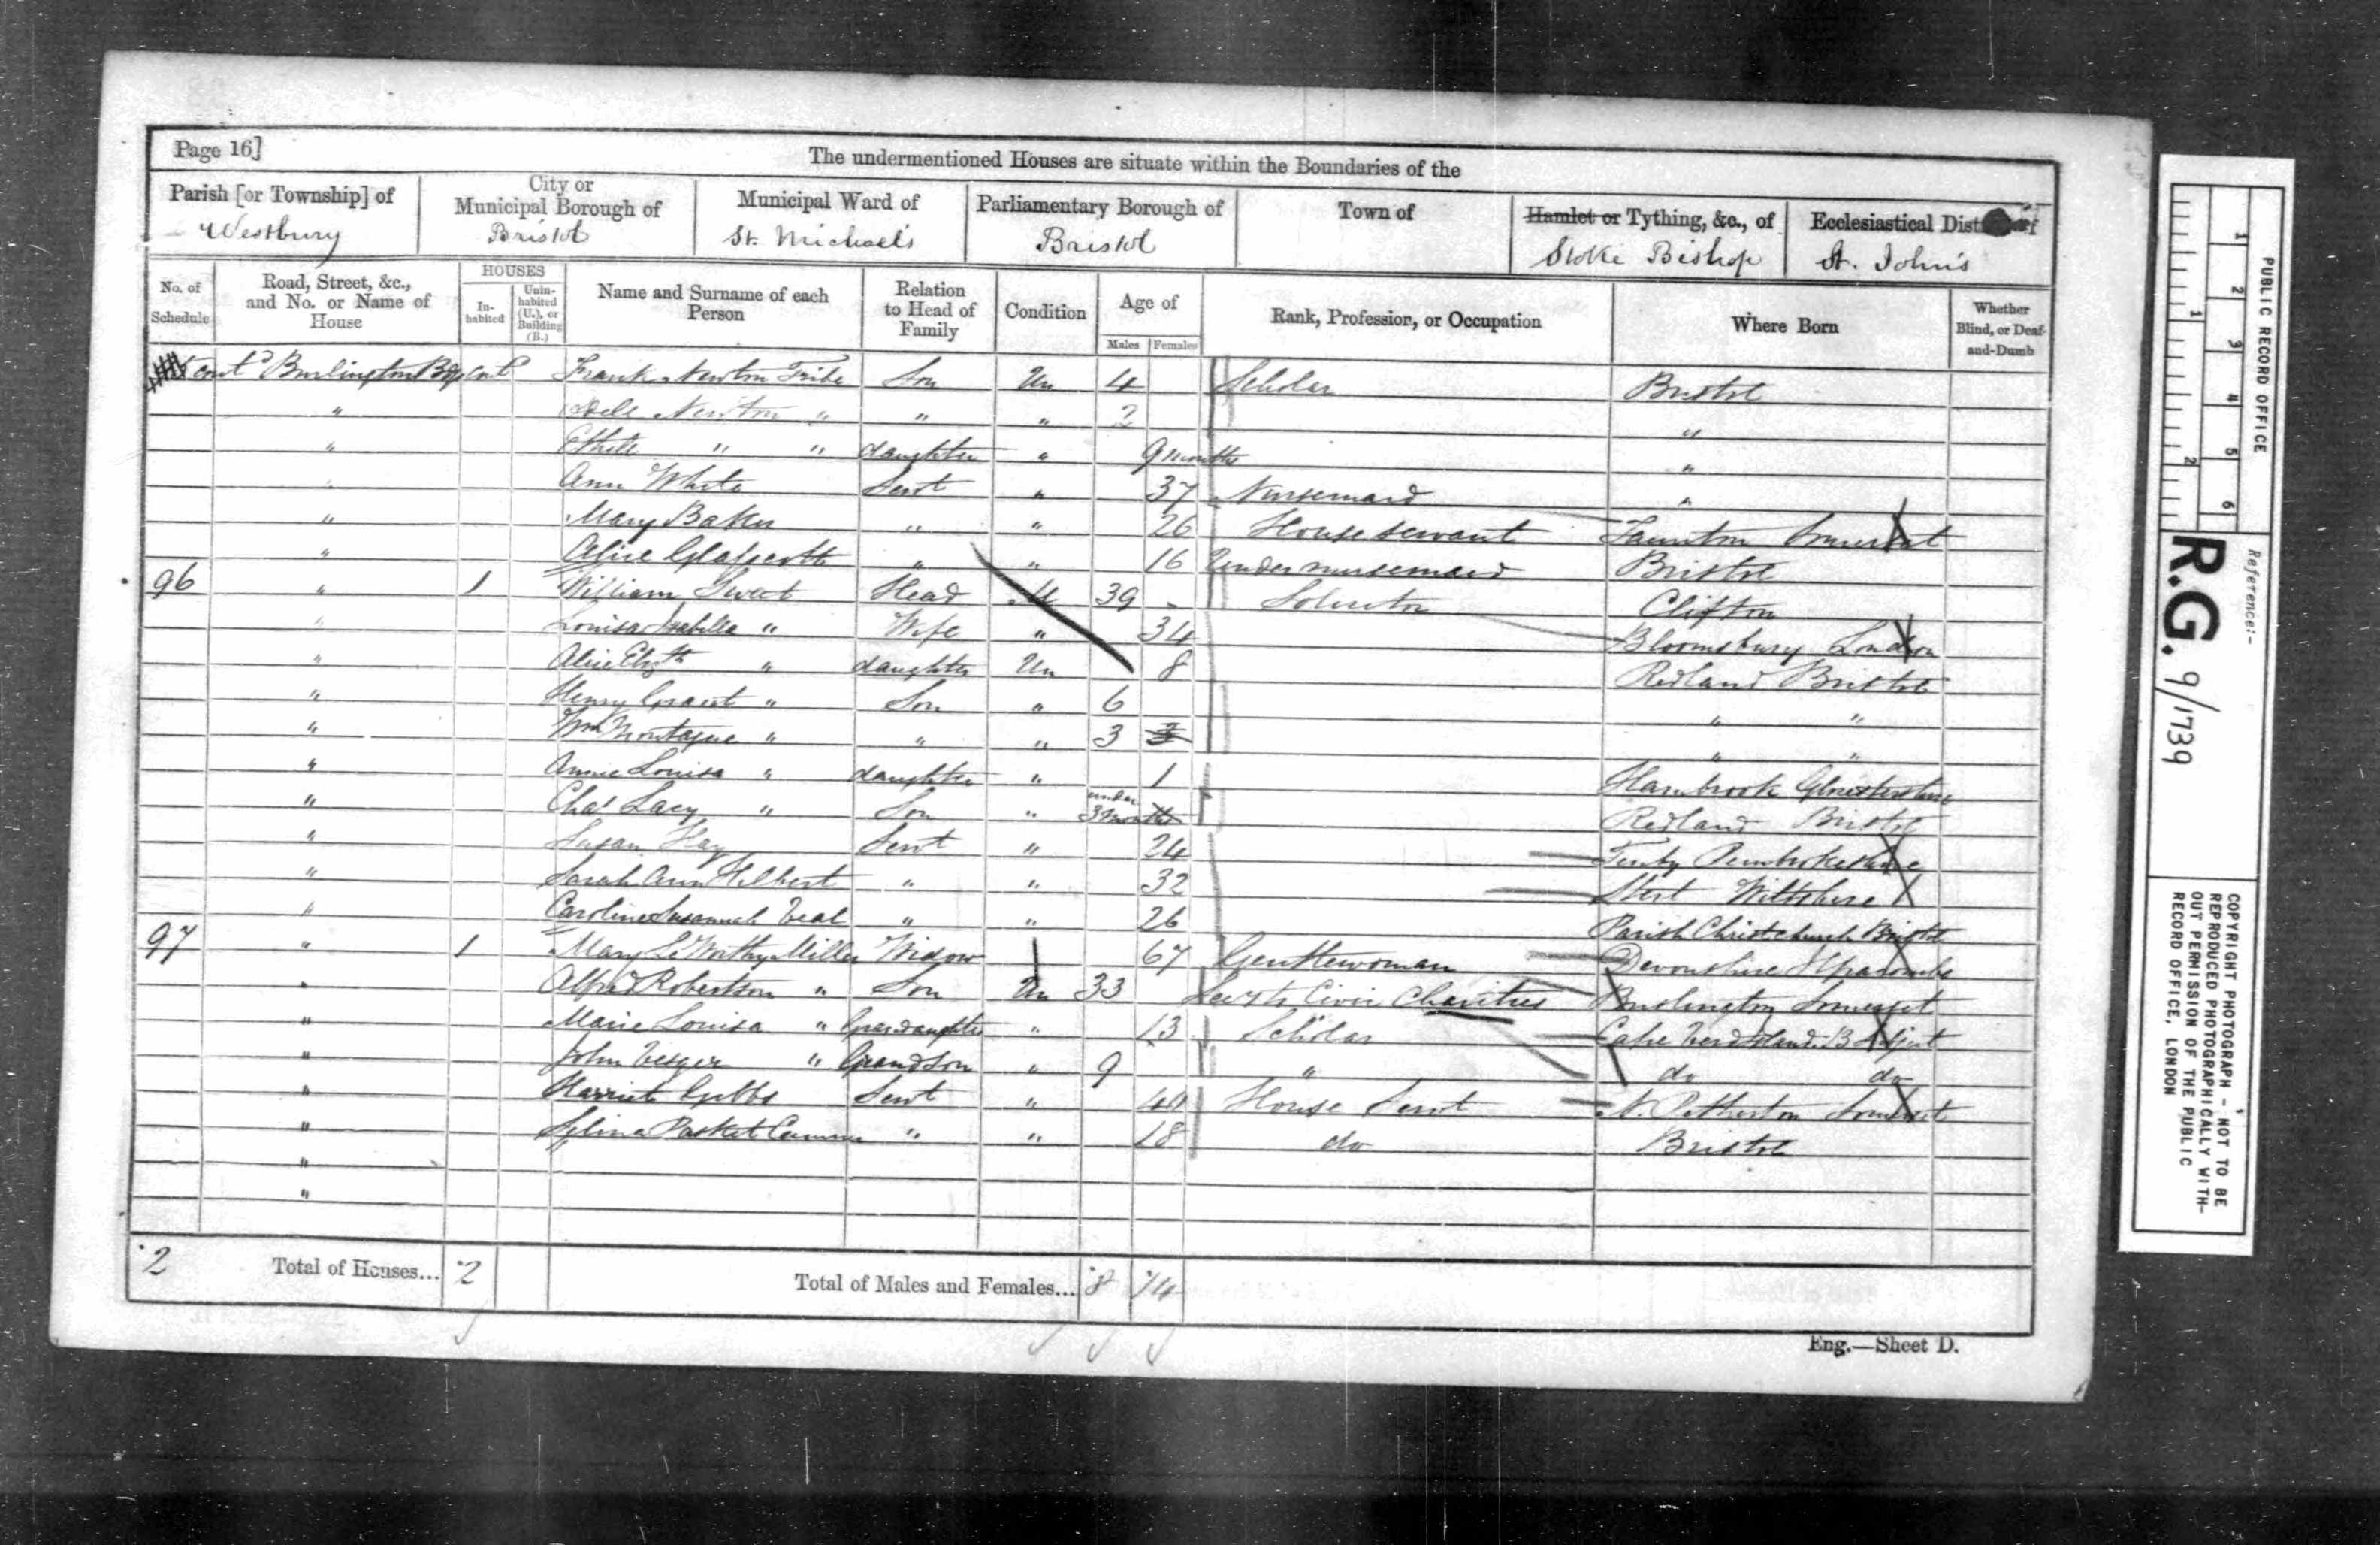 Page 16]
The undermentioned Houses are situate within the Boundaries of the
Parish [or Township] of Westbury
City or Municipal Borough of Bristol
Municipal Ward of St. Michael's
Parliamentary Borough of Bristol
Town of
Hamlet or Tything, &c., of Stoke Bishop
Ecclesiastical Dist St. John's
No. of Schedule
Road, Street, &c., and No. or Name of House
HOUSES
In-habited
Unin-habited (U.), or Building (B.)
Name and Surname of each Person
Relation to Head of Family
Condition
Age of
Males Females
Rank, Profession, or Occupation
Where Born
Whether Blind, or Deaf-and-Dumb
Contd Burlington Frank Newton Tribe Son Un 4 Scholar Bristol
" Newton " " " 2 "
" " " daughter " 9 months "
Ann White Servt " 37 Nursemaid "
" Mary Baker " " 26 House servant Taunton Somerset
" Alice " " 16 Under nursemaid Bristol
96 " 1 William Sweet Head M 39 Solicitor Clifton
" Louisa Isabella " Wife " 34 Bloomsbury London
" Alice Elizth " daughter Un 8 Redland Bristol
" Henry Grant " Son " 6 " "
" Wm Montague " " " 3 3 " "
" Annie Louisa " daughter " 1 Hambrook Gloucestershire
" Chas Lacy " Son " under 3 months Redland Bristol
" Susan Hay Servt " 24 Tenby Pembrokeshire
" Sarah Ann " " 32 Stert Wiltshire
" Caroline Susannah Veal " " 26 Parish Christchurch Bristol
97 " 1 Mary Miller Widow 67 Gentlewoman Devonshire Ilfracombe
" Alfred Robertson " Son Un 33 Civic Charities Brislington Somerset
" Marie Louisa " Grandaughter " 13 Scholar Cape Verd Island B Subject
" John " Grandson " 9 " do do
" Harriet Gibbs Servt " House Servt N. Petherton Somerset
" " " 18 do Bristol
"
"
2 Total of Houses... 2 Total of Males and Females... 8 14
Eng.—Sheet D.
PUBLIC RECORD OFFICE
1 2 3 4 5 6
1 2
Reference:-
R.G. 9/1739
COPYRIGHT PHOTOGRAPH - NOT TO BE
REPRODUCED PHOTOGRAPHICALLY WITH-
OUT PERMISSION OF THE PUBLIC
RECORD OFFICE, LONDON